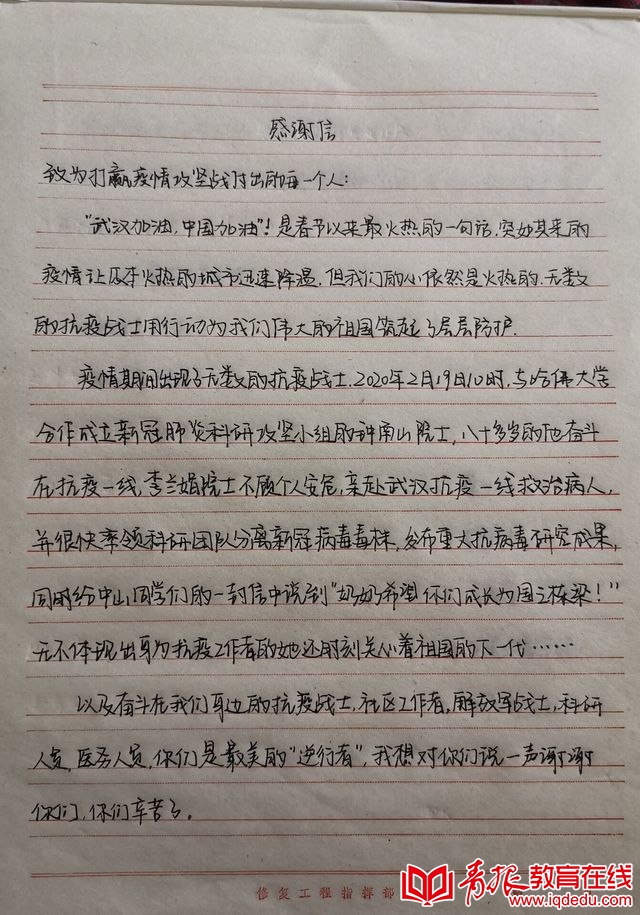 感谢信
致为打赢疫情攻坚战付出的每一个人:
“武汉加油,中国加油”!是春节以来最火热的一句话,突如其来的
疫情让原本火热的城市迅速降温,但我们的心依然是火热的.无数
的抗疫战士用行动为我们伟大的祖国筑起了层层防护.
疫情期间出现了无数的抗疫战士,2020年2月19日10时,与哈佛大学
合作成立新冠肺炎科研攻坚小组的钟南山院士,八十多岁的他奋斗
在抗疫一线,李兰娟院士不顾个人安危,亲赴武汉抗疫一线救治病人,
并很快率领科研团队分离新冠病毒毒株,发布重大抗病毒研究成果,
同时给中山同学们的一封信中说到“奶奶希望你们成长为国之栋梁!”
无不体现出身为抗疫工作者的她还时刻关心着祖国的下一代……
以及奋斗在我们身边的抗疫战士,社区工作者,解放军战士,科研
人员,医务人员,你们是最美的“逆行者”,我想对你们说一声谢谢
你们,你们辛苦了。
修复工程指挥部
青报教育在线
www.iqdedu.com